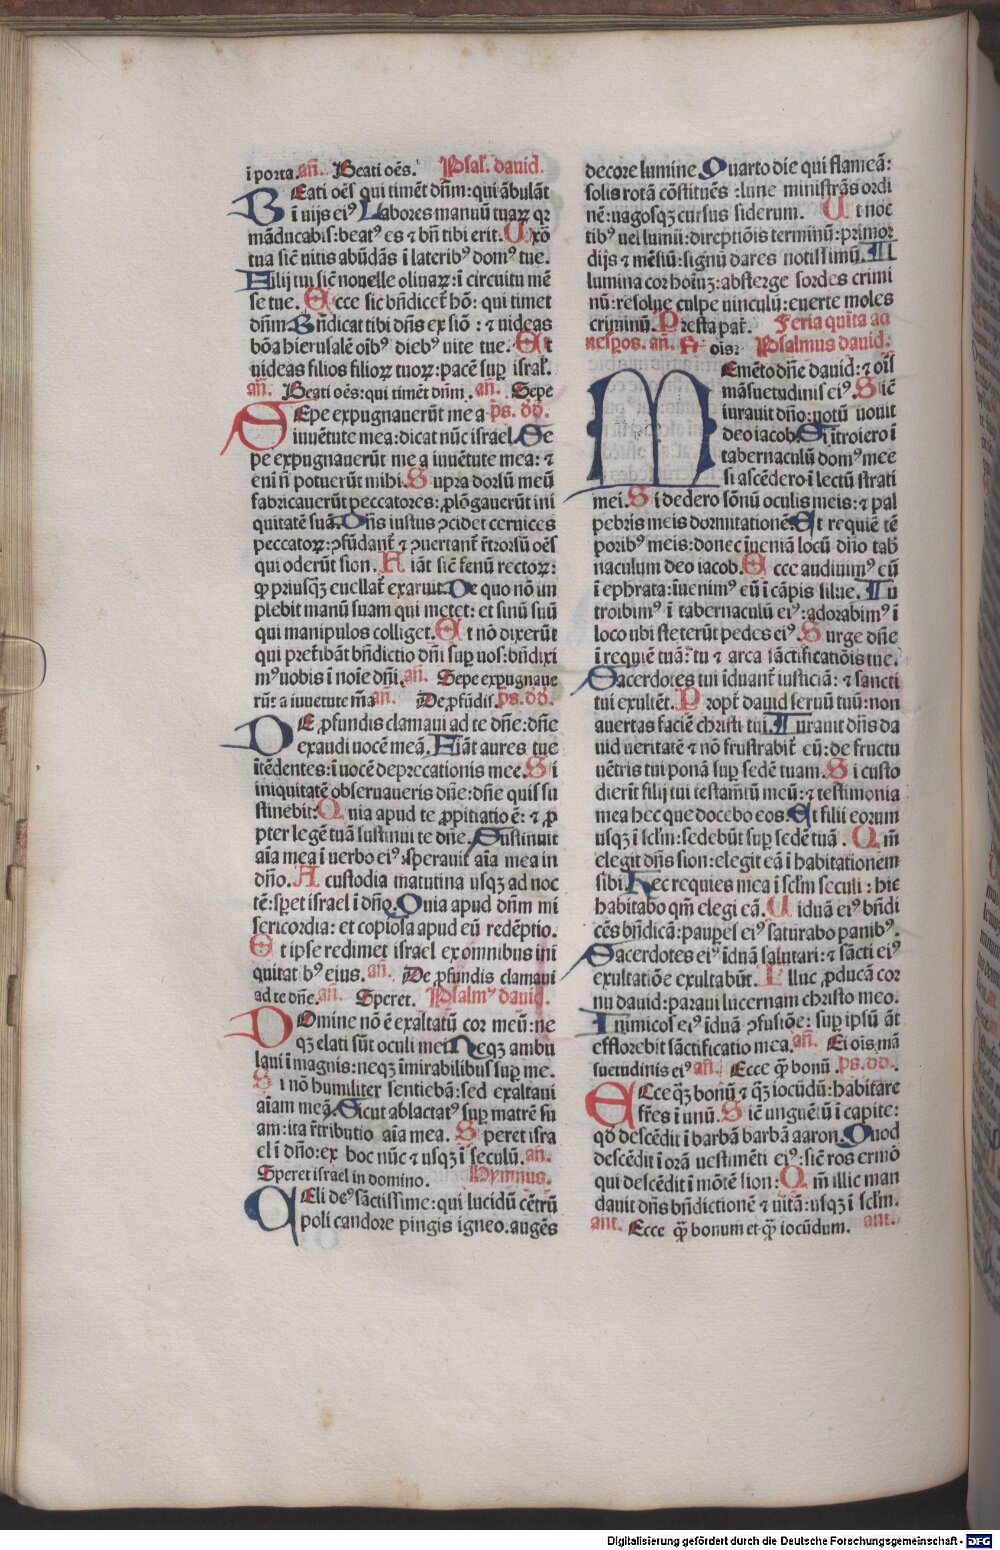 ī porta. añ. Beati oēs. Psal. dauid.
BEati oēs qui timēt dñm: qui ābulāt
ī uijs eiꝰ. Labores manuū tuaꝝ qꝛ
māducabis: beatꝰ es ⁊ bñ tibi erit. Uxoꝛ
tua sic̄ uitis abūdās ī lateribꝰ domꝰ tue.
Filij tui sic̄ nouelle oliuaꝝ: ī circuitu mē
se tue. Ecce sic bñdicet̄ hō: qui timet
dñm. Bñdicat tibi dñs ex siō : ⁊ uideas
bōa hierusalē oībꝰ diebꝰ uite tue. Et
uideas filios filioꝝ tuoꝝ: pacē suꝑ isrl̄.
añ. Beati oēs: qui timēt dñm. añ. Sepe
SEpe expugnauerūt me a ps. dd.
iuuētute mea: dicat nūc israel. Se
pe expugnauerūt me a iuuētute mea: ⁊
eni ñ potuerūt mihi. Supra dorsū meū
fabricauerūt peccatores: ꝓlōgauerūt ini
quitatē suā. Dñs iustus ꝯcidet ceruices
peccatoꝝ: ꝯfūdant̄ ⁊ ꝯuertant̄ r̄trorsū oēs
qui oderūt sion. Fiāt sic̄ fenū tectoꝝ:
qꝓ priusqꝫ euellat̄ exaruit. De quo nō im
plebit manū suam qui metet: et sinū suū
qui manipulos colliget. Et nō dixerūt
qui pret̄ibāt bñdictio dñi suꝑ uos: bñdixi
mꝰ uobis ī noie dñi. añ. Sepe expugnaue
rūt a iuuētute m̄a añ. De ꝓfūdis. ps. dd.
DE ꝓfundis clamaui ad te dñe: dñe
exaudi uocē meā. Fiāt aures tue
ītēdentes: ī uocē deprecationis mee. Si
iniquitatē obseruaueris dñe: dñe quis su
stinebit: Quia apud te ꝓpitiatio ē: ⁊ ꝓ
pter legē tuā sustinui te dñe. Sustinuit
aīa mea ī uerbo eiꝰ: sperauit aīa mea in
dño. A custodia matutina usqꝫ ad noc
tē: speret israel ī dño. Quia apud dñm mi
sericordia: et copiosa apud eū redēptio.
Et ipse redimet israel ex omnibus ini
quitatibꝰ eius. añ. De ꝓfundis clamaui
ad te dñe. añ. Speret. Psalmꝰ dauid.
DOmine nō ē exaltatū cor meū: ne
qꝫ elati sūt oculi mei. Neqꝫ ambu
laui ī magnis: neqꝫ ī mirabilibus suꝑ me.
Si nō humiliter sentiebā: sed exaltaui
aīam meā. Sicut ablactatꝰ suꝑ matrē su
am: ita r̄tributio aīa mea. Speret isra
el ī dño: ex hoc nūc ⁊ usqꝫ ī seculū. añ.
Speret israel in domino. Hymnus.
CEli deꝰ sāctissime: qui lucidū cētrū
poli candore pingis igneo. augēs
decore lumine Quarto die qui flāmeā:
solis rotā cōstituēs : lune ministrās ordi
nē: uagosqꝫ cursus siderum. Ut noc
tibꝰ uel lumīi: direptiōis terminū: primor
dijs ⁊ mēsiū: signū dares notissimū. Il
lumina cor hoīuꝫ: absterge sordes crimi
nū: resolue culpe uinculū: euerte moles
criminū. Presta pat̄. Feria quīta ad
uesꝑos. añ. Et oīs: Psalmus dauid.
MEmēto dñe dauid: ⁊ oīs
māsuetudinis eiꝰ. Sic̄
iurauit dño: uotū uouit
deo iacob. Si ītroiero ī
tabernaculū domꝰ mee
si ascēdero ī lectū strati
mei. Si dedero sōnū oculis meis: ⁊ pal
pebris meis dormitationē. Et requiē tē
poribꝰ meis: donec īueniā locū dño tab̄
naculum deo iacob. Ecce audiuimꝰ eū
ī ephrata: īuenimꝰ eū ī cāpis silue. In
troibimꝰ ī tabernaculū eiꝰ: adorabimꝰ ī
loco ubi steterūt pedes eiꝰ. Surge dñe
ī requiē tuā: tu ⁊ arca sāctificatiōis tue.
Sacerdotes tui īduant̄ iusticiā: ⁊ sancti
tui exultēt. Propt̄ dauid seruū tuū: non
auertas faciē christi tui. Iurauit dñs da
uid ueritatē ⁊ nō frustrabit̄ eū: de fructu
uētris tui ponā suꝑ sedē tuam. Si custo
dierīt filij tui testamtū meū: ⁊ testimonia
mea hec que docebo eos. Et filii eorum
usqꝫ ī sclm̄: sedebūt suꝑ sedē tuā . Qm̄
elegit dñs sion: elegit eā ī habitationem
sibi. Hec requies mea ī sclm̄ seculi : hic
habitabo qm̄ elegi eā. Uiduā eiꝰ bñdi
cēs bñdicā: pauꝑes eiꝰ saturabo panibꝰ.
Sacerdotes eiꝰ īduā salutari: ⁊ sācti eiꝰ
exultatiōe exultabūt. Illuc ꝓducā cor
nu dauid: paraui lucernam christo meo.
Inimicos eiꝰ īduā ꝯfusiōe: suꝑ ipsū āt
efflorebit sāctificatio mea. añ. Et oīs mā
suetudinis eiꝰ añ. Ecce qꝫ bonū . ps. dd.
ECce qꝫ bonū ⁊ qꝫ iocūdū: habitare
fr̄es ī unū. Sic̄ unguētū ī capite:
qd̄ descēdit ī barbā barbā aaron. Quod
descēdit ī orā uestimēti eiꝰ: sic̄ ros ermō
qui descēdit ī mōtē sion: Qm̄ illic man
dauit dñs bñdictionē ⁊ uitā: usqꝫ ī sclm̄.
ant. Ecce qꝫ bonum et qꝫ iocūdum. ant.
Digitalisierung gefördert durch die Deutsche Forschungsgemeinschaft - DFG